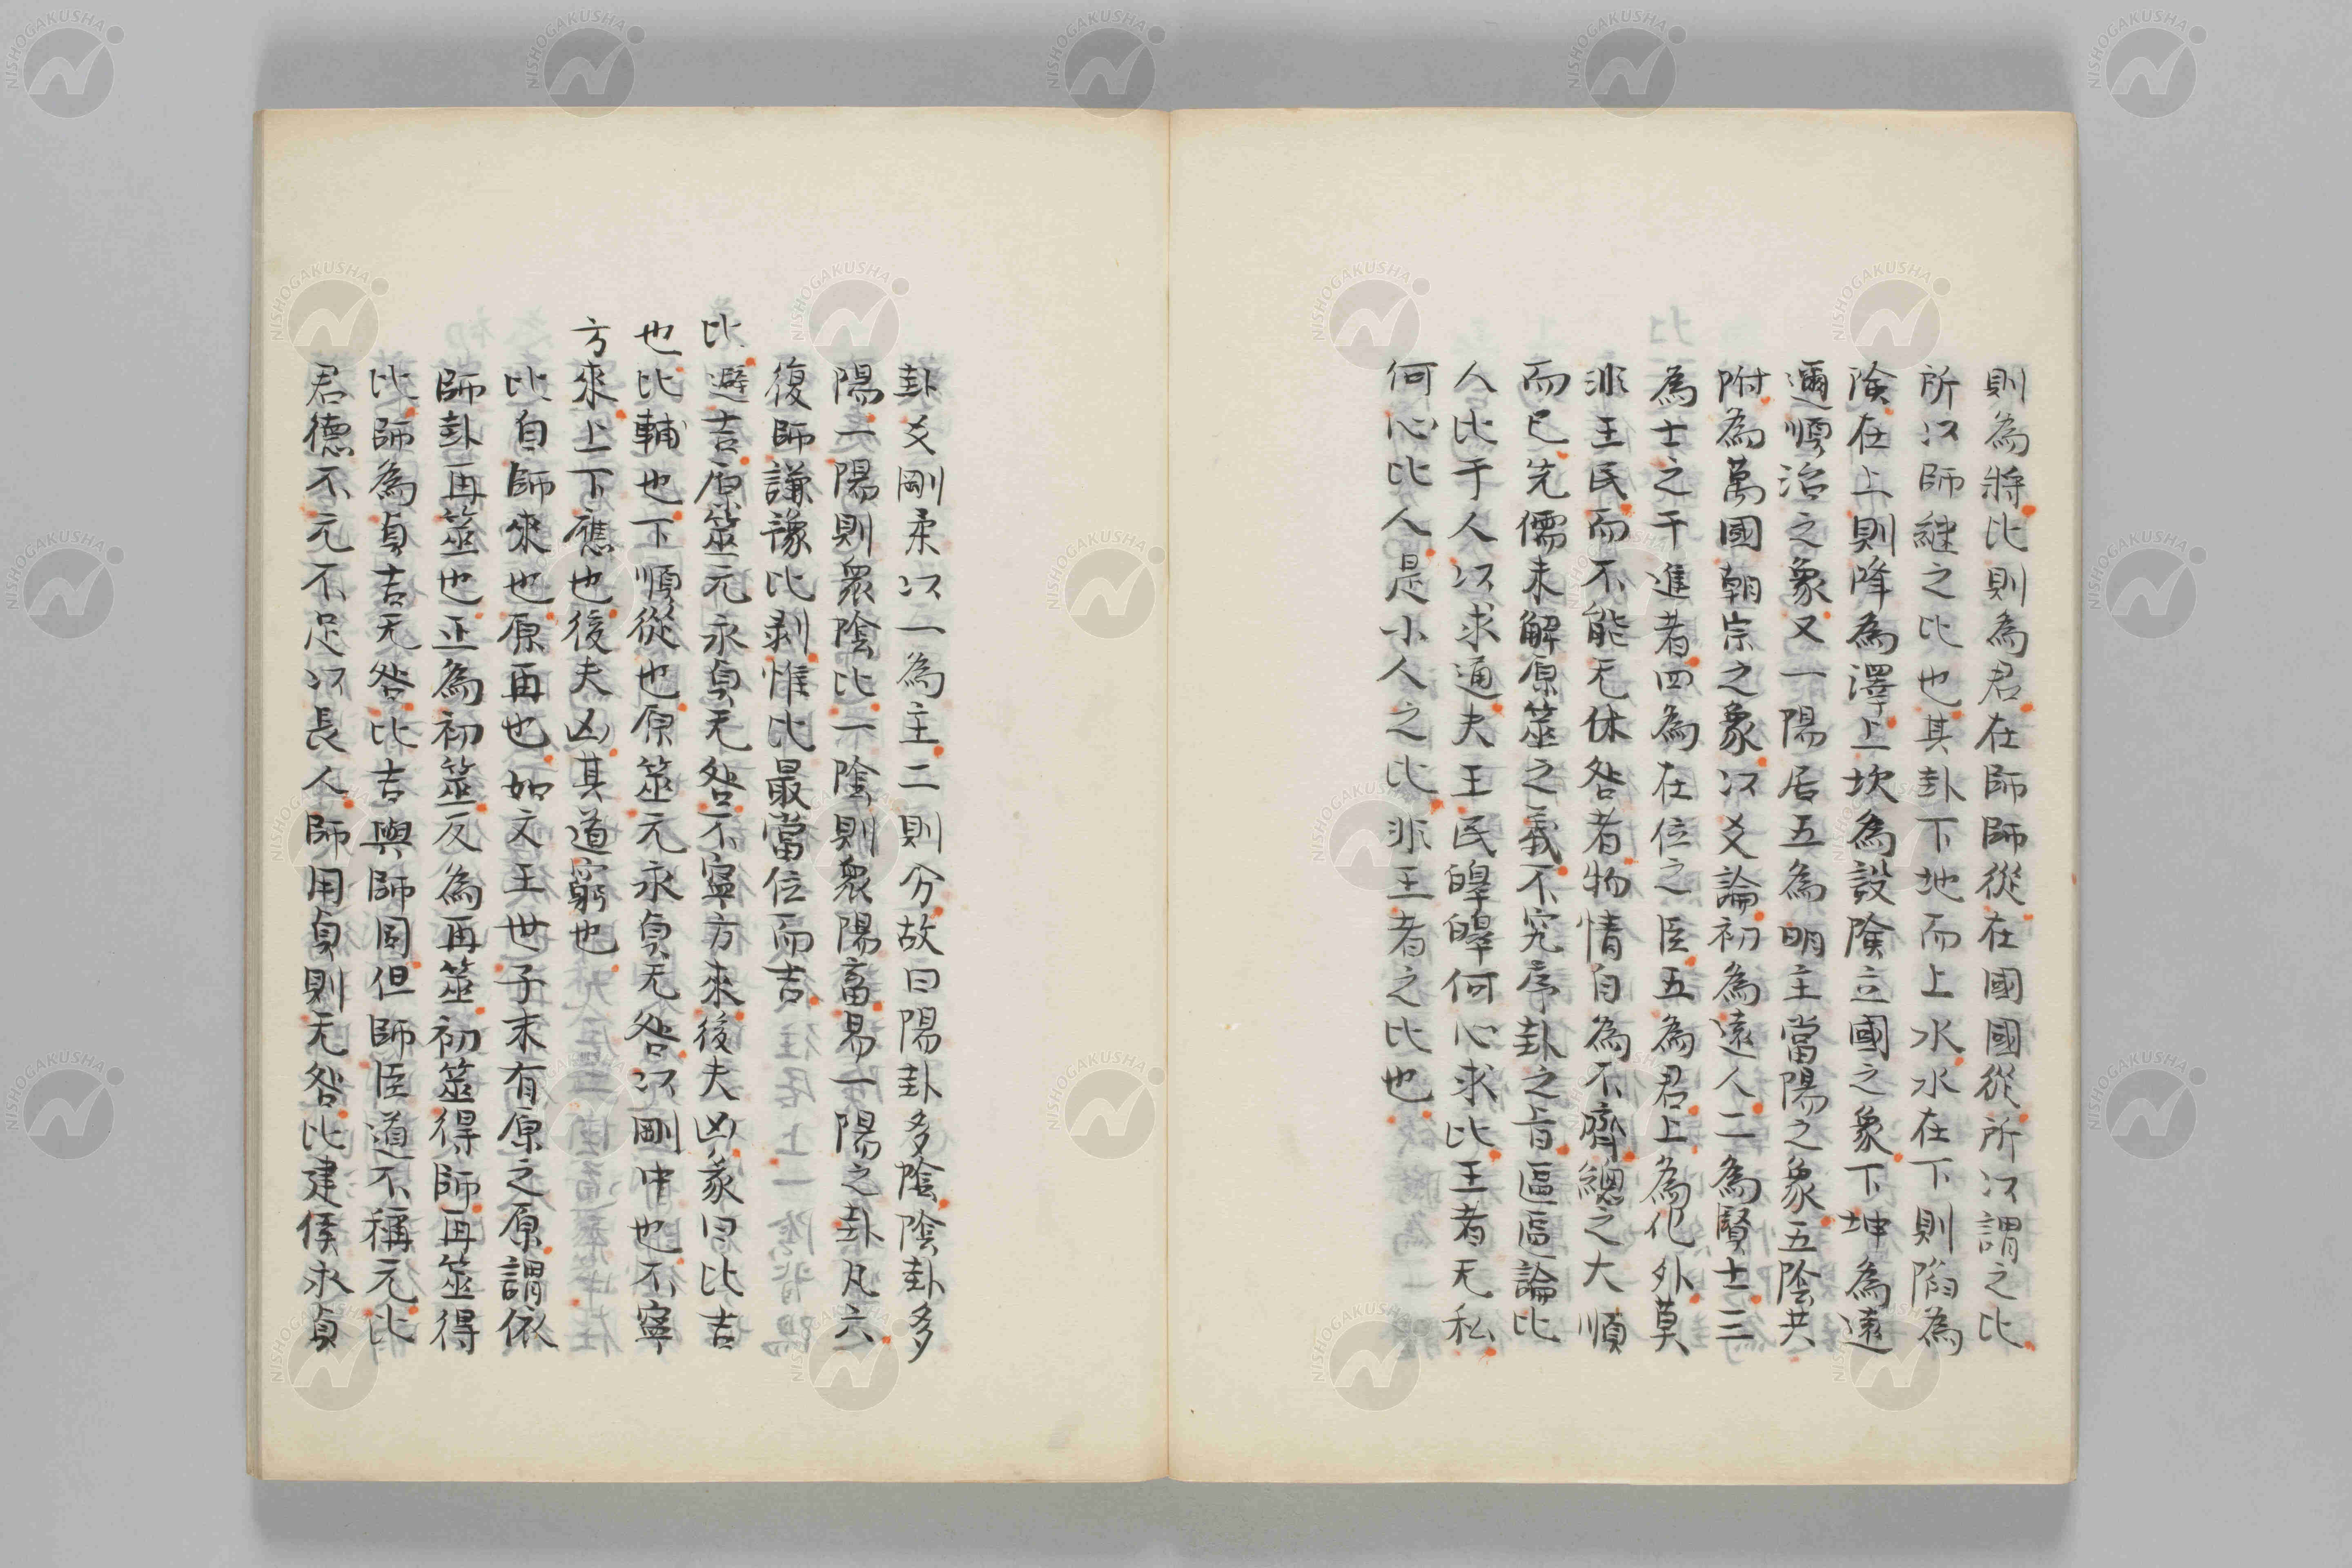 則為將比則為君在師師從在國國從所以謂之比
所以師継之比也其卦下地而上水水在下則陷為
険在上則降為澤上坎為設険立國之象下坤為遠
邇順治之象又一陽居五為明主當陽之象五陰共
附為萬國朝宗之象以爻論初為遠人二為賢士三
為士之干進者四為在位之臣五為君上為化外莫
非王民而不能无休咎者物情自為不齊總之大順
而已先儒未解原筮之義不究序卦之旨區區論比
人比于人以求通夫王民皞皞何心求比王者无私
何心比人是小人之比非王者之比也
卦爻剛柔以一為主二則分故曰陽卦多陰陰卦多
陽一陽則衆陰比一陰則衆陽畜易一陽之卦凡六
復師謙豫比剥惟比最當位而吉
比避吉原筮元永貞无咎不寧方來後夫凶彖曰比吉
也比輔也下順從也原筮元永貞无咎以剛中也不寧
方來上下應也後夫凶其道窮也
比自師來也原再也如文王世子末有原之原謂依
師卦再筮也正為初筮反為再筮初筮得師再筮得
比師為貞吉无咎比吉與師同但師臣道不稱元比
君德不元不足以長人師用貞則无咎比建侯永貞
NISHOGAKUSHA